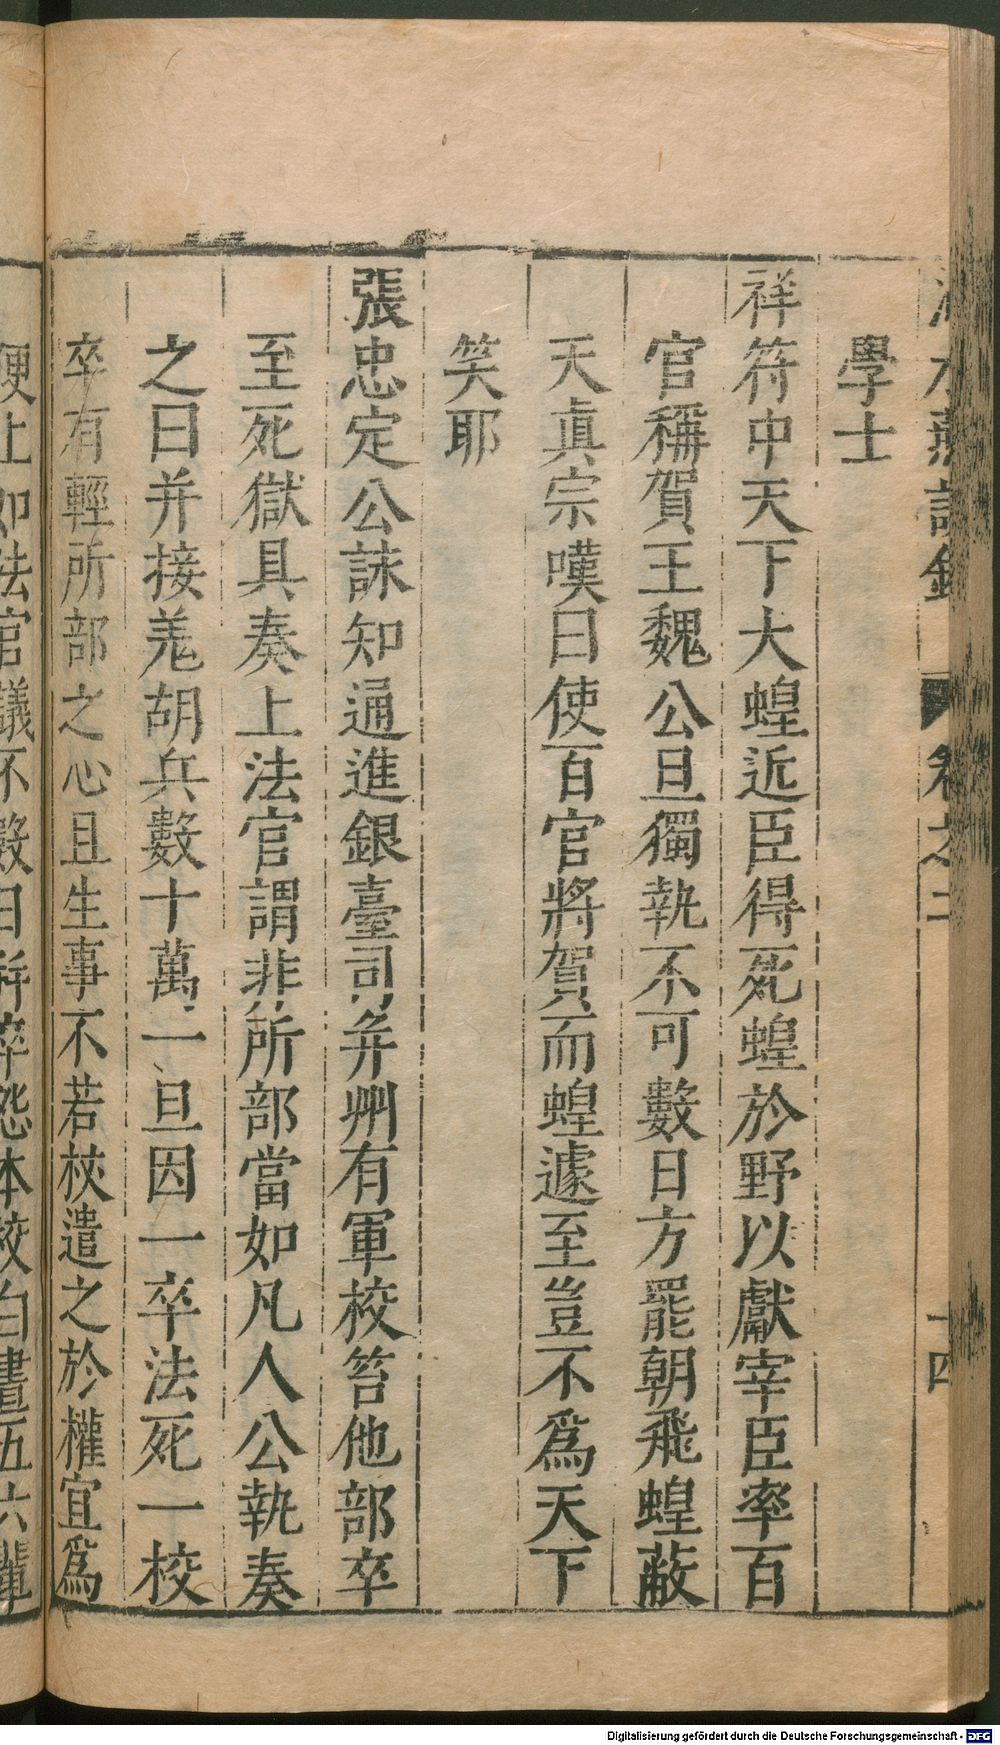 水燕談錄 卷之二 十四
學士
祥符中天下大蝗近臣得死蝗於野以獻宰臣率百
官稱賀王魏公旦獨執不可數日方罷朝飛蝗蔽
天眞宗嘆曰使百官將賀而蝗遽至豈不爲天下
笑耶
張忠定公詠知通進銀臺司幷州有軍校笞他部卒
至死獄具奏上法官謂非所部當如凡人公執奏
之曰并接羗胡兵數十萬一旦因一卒法死一校
卒有輕所部之心且生事不若杖遣之於權宜爲
便上如法官議不數日幷卒怨本校白晝五六輩
Digitalisierung gefördert durch die Deutsche Forschungsgemeinschaft - DFG